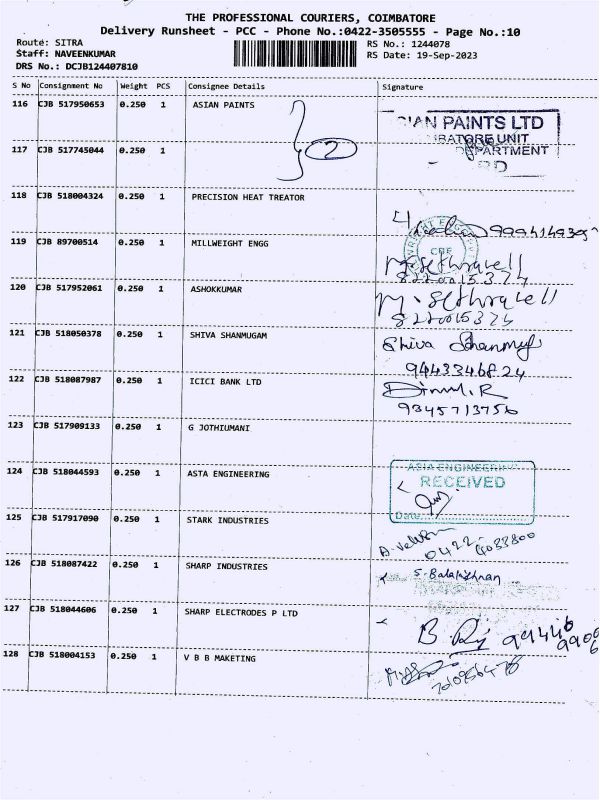 THE PROFESSIONAL COURIERS, COIMBATORE
Delivery Runsheet - PCC - Phone No.:0422-3505555 - Page No.:10
Route: SITRA RS No.: 1244078
Staff: NAVEENKUMAR RS Date: 19-Sep-2023
DRS No.: DCJB124407810
S No Consignment No Weight PCS Consignee Details Signature
116 CJB 517950653 0.250 1 ASIAN PAINTS
2
IAN PAINTS LTD
BATORE UNIT
DEPARTMENT
117 CJB 517745044 0.250 1
118 CJB 518004324 0.250 1 PRECISION HEAT TREATOR
119 CJB 89700514 0.250 1 MILLWEIGHT ENGG
CBE
M. Sethravell
8220015374
120 CJB 517952061 0.250 1 ASHOKKUMAR
M. Sethravell
8220015374
121 CJB 518050378 0.250 1 SHIVA SHANMUGAM
Shiva Shanmugam
9443346824
122 CJB 518087987 0.250 1 ICICI BANK LTD
9345713756
123 CJB 517909133 0.250 1 G JOTHIUMANI
124 CJB 518044593 0.250 1 ASTA ENGINEERING
ASIA ENGINEERING
RECEIVED
Date
125 CJB 517917090 0.250 1 STARK INDUSTRIES
0422-4033800
126 CJB 518087422 0.250 1 SHARP INDUSTRIES
S. Balakrishnan
127 CJB 518044606 0.250 1 SHARP ELECTRODES P LTD
128 CJB 518004153 0.250 1 V B B MAKETING